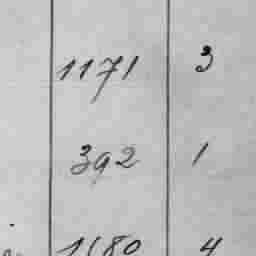 1171 3
392 1
1680 4